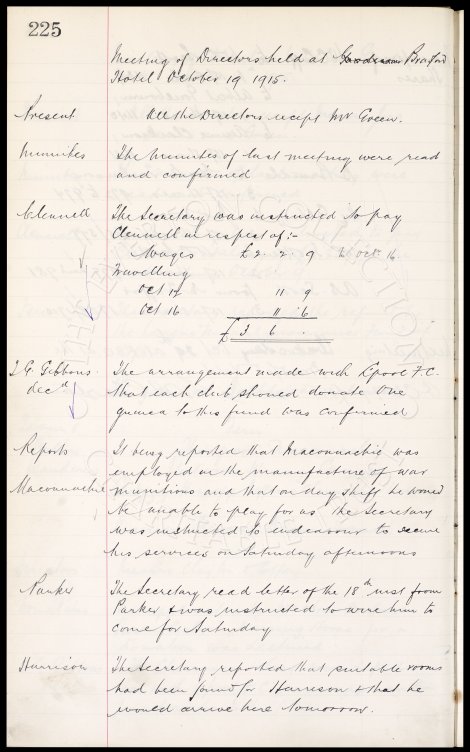 225
Meeting of Directors held at Goodison Bradford
Hotel October 19 1915.
Present All the Directors except Mr Green.
Minutes The Minutes of last meeting were read
and confirmed
Clennell The Secretary was instructed to pay
Clennell in respect of:-
Wages £2. 2. 9 to Oct 16
Travelling
Oct 14 11 9
Oct 16 11 .6
£ 3 6 .
J. G. Gibbons The arrangement made with L'pool F.C.
decd that each club should donate One
guinea to this fund was confirmed
Reports It being reported that Maconnachie was
employed in the manufacture of war
Maconnachie munitions and that on day shift he would
be unable to play for us the Secretary
was instructed to endeavour to secure
his services on Saturday afternoons
Parker The Secretary read letter of the 18th inst from
Parker & was instructed to wire him to
come for Saturday
Harrison The Secretary reported that suitable rooms
had been found for Harrison & that he
would arrive here tomorrow.